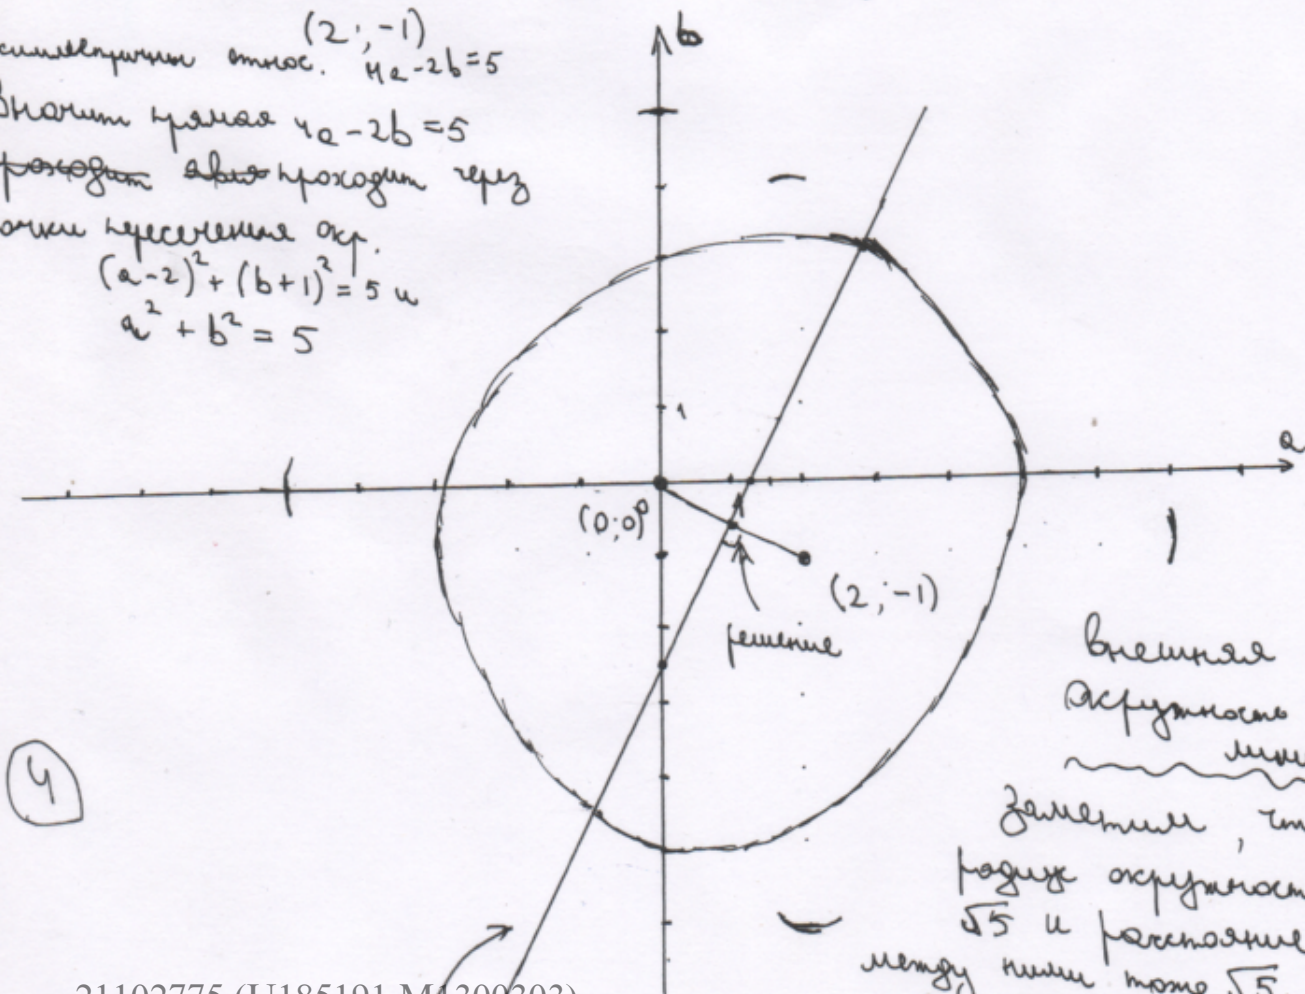 (2; -1)
симметричны относ. 4a-2b=5
Значит прямая 4a-2b=5
проходит через
точки пересечения окр.
(a-2)² + (b+1)² = 5 и
a² + b² = 5
b
1
a
(0;0)
(2;-1)
решение
внешняя
окружность
4
Заметим, что
радиус окружност
√5 и расстояние
между ними тоже √5
21102775 (U185191 M1300303)